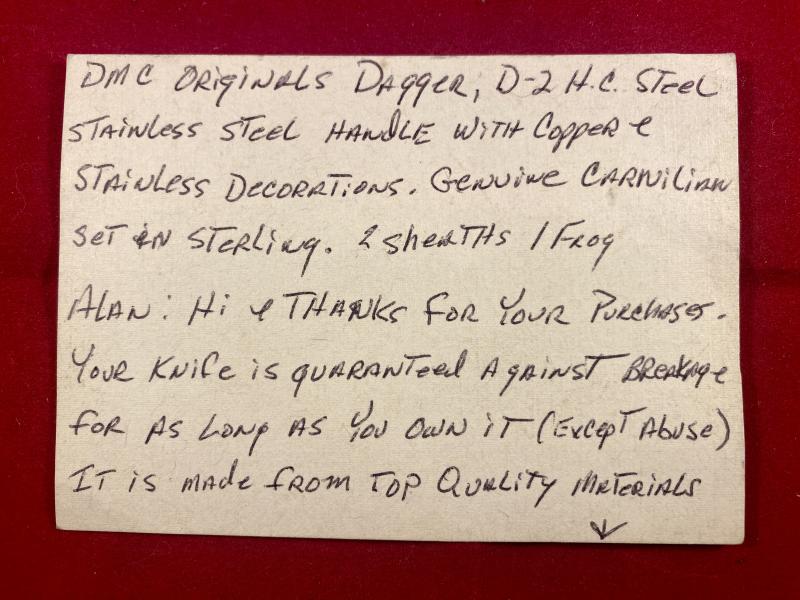 DMC Originals Dagger, D-2 H.C. Steel
Stainless Steel Handle with Copper &
Stainless Decorations. Genuine Carnilian
set in Sterling. 2 sheaths / 1 Frog
Alan: Hi & Thanks for Your Purchases.
Your Knife is guaranteed Against Breakage
for as Long as You own it (Except Abuse)
It is made from Top Quality Materials
↓